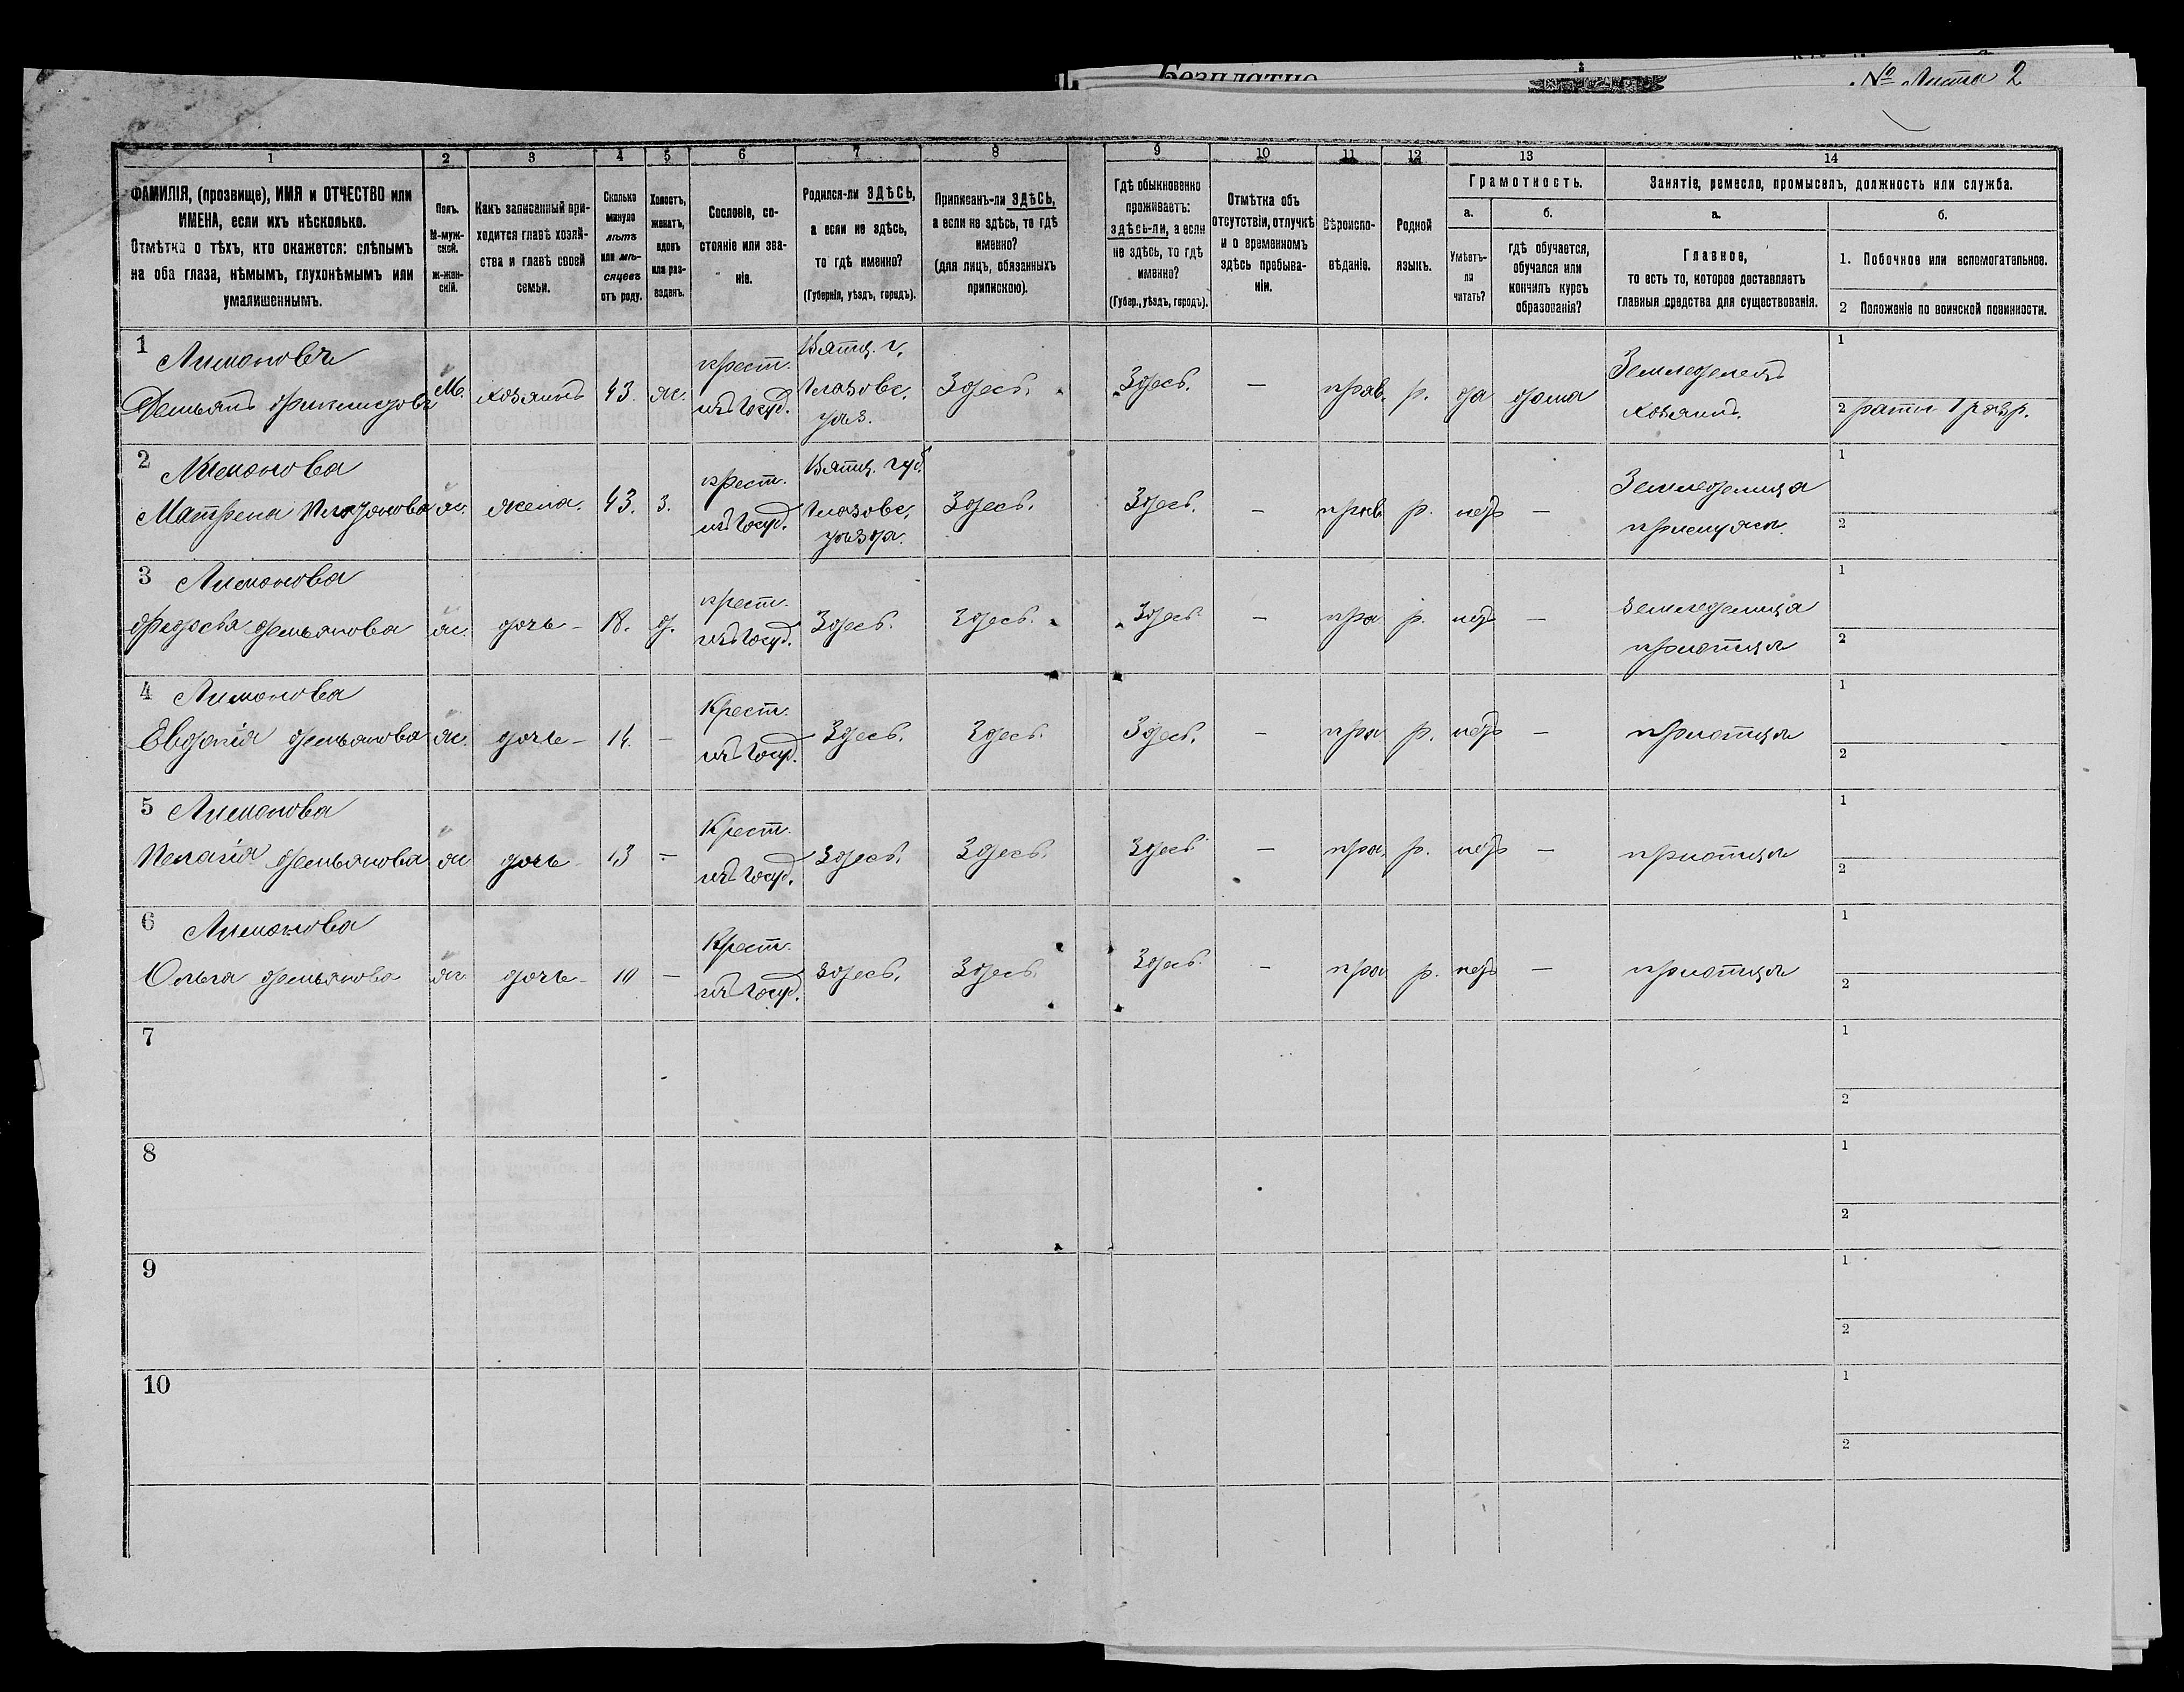 Безплатно
№ Листа 2
1 2 3 4 5 6 7 8 9 10 11 12 13 14
ФАМИЛІЯ, (прозвище), ИМЯ и ОТЧЕСТВО или
ИМЕНА, если ихъ нѣсколько.
Отмѣтка о тѣхъ, кто окажется: слѣпымъ
на оба глаза, нѣмымъ, глухонѣмымъ или
умалишеннымъ.
Полъ.
М-муж-
ской.
ж-жен-
скій.
Какъ записанный при-
ходится главѣ хозяй-
ства и главѣ своей
семьи.
Сколько
минуло
лѣтъ
или мѣ-
сяцевъ
отъ роду.
Холостъ,
женатъ,
вдовъ
или раз-
веденъ.
Сословіе, со-
стояніе или зва-
ніе.
Родился-ли ЗДѢСЬ,
а если не здѣсь,
то гдѣ именно?
(Губернія, уѣздъ, городъ).
Приписанъ-ли ЗДѢСЬ,
а если не здѣсь, то гдѣ
именно?
(для лицъ, обязанныхъ
припискою).
Гдѣ обыкновенно
проживаетъ:
здѣсь-ли, а если
не здѣсь, то гдѣ
именно?
(Губер., уѣздъ, городъ).
Отмѣтка объ
отсутствіи, отлучкѣ
и о временномъ
здѣсь пребыва-
ніи.
Вѣроиспо-
вѣданіе.
Родной
языкъ.
Грамотность.
а.
Умѣетъ-
ли
читать?
б.
гдѣ обучается,
обучался или
кончилъ курсъ
образованія?
Занятіе, ремесло, промыселъ, должность или служба.
а.
Главное,
то есть то, которое доставляетъ
главныя средства для существованія.
б.
1. Побочное или вспомогательное.
2 Положеніе по воинской повинности.
1 Лимоновъ
Демьянъ
М. хозяинъ 43. ж.
крест.
изъ Госуд.
Вятц. г.
Глазовс.
уѣз.
Здесь. Здесь. — прав. р. да дома
Земледелецъ
хозяинъ.
1
2 ратн 1 разр.
2 Лимонова
Матрена Платонова ж. жена. 43. з.
крест.
изъ Госуд.
Вятц. губ.
Глазовс.
уѣзда.
Здесь. Здесь. — прав. р. нетъ —
Земледелица
при муже.
1
2
3 Лимонова
Федосья Демьянова ж. дочь 18. д.
крест.
изъ Госуд.
Здесь. Здесь. Здесь — пра р. нетъ —
земледелица
при отце
1
2
4 Лимонова
Евдокія Демьянова ж. дочь 14. —
Крест.
изъ Госуд.
Здесь. Здесь. Здесь. — пра р. нетъ — при отце
1
2
5 Лимонова
Пелагія Демьянова ж дочь 13 —
Крест.
изъ Госуд.
Здесь. Здесь. Здесь — пра. р. нетъ — при отце
1
2
6 Лимонова
Ольга Демьянова ж. дочь 10 —
Крест.
изъ Госуд.
Здесь. Здесь. Здесь — пра р. нетъ — при отце
1
2
7
1
2
8
1
2
9
1
2
10
1
2